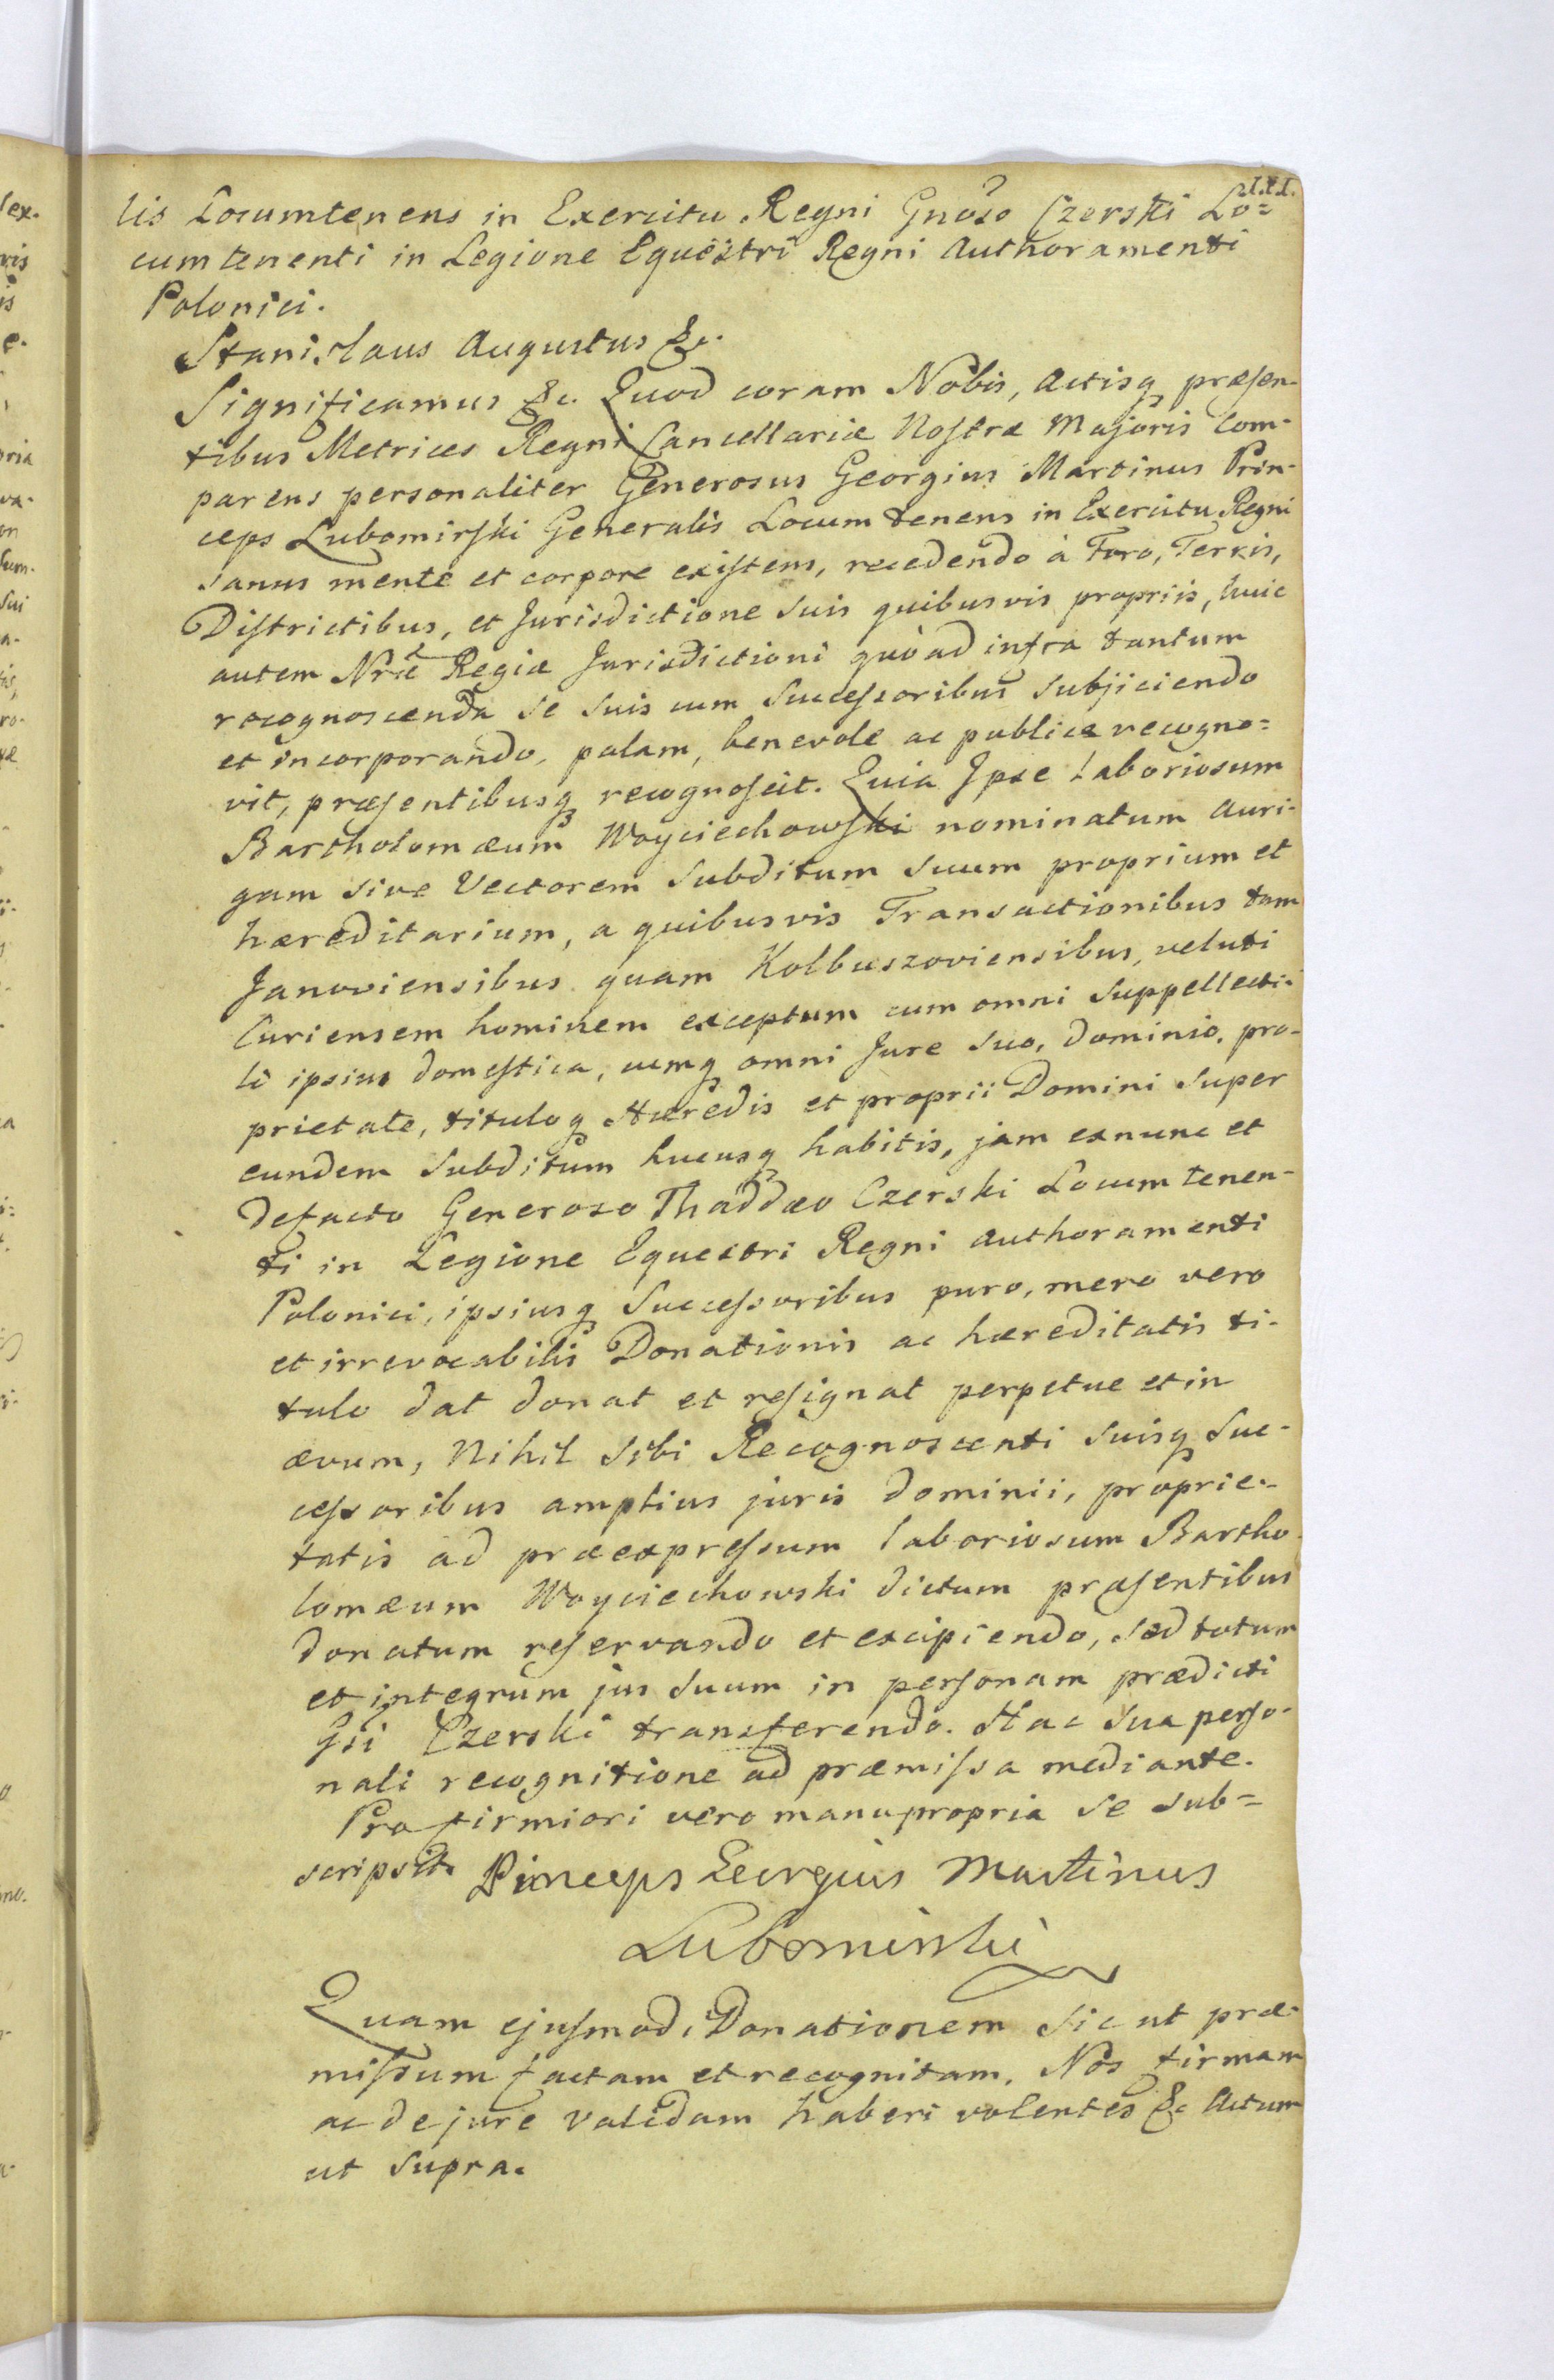 lis Locumtenens in Exercitu Regni Gnoso Czerski Lo=
cumtenenti in Legione Equestri Regni Authoramenti
Polonici.
Stanislaus Augustus &c.
Significamus &c. Quod coram Nobis, Actisq præsen-
tibus Metrices Regni Cancellariæ Nostræ Majoris Com-
parens personaliter Generosus Georgius Martinus Prin-
ceps Lubomirski Generalis Locum tenens in Exercitu Regni
sanus mente et corpore existens, recedendo à Foro, Terris,
Districtibus, et Jurisdictione suis quibusvis propriis, huic
autem Nræ Regiæ Jurisdictioni quò ad infra tantum
recognoscenda se suis cum Successoribus subjiciendo
et incorporando, palam, benevole ac publice recogno=
vit, præsentibusq recognoscit. Quia Ipse laboriosum
Bartholomæum Woyciechowski nominatum Auri-
gam sive Vectorem subditum suum proprium et
hæreditarium, a quibusvis Transactionibus tam
Janoviensibus quam Kolbuszoviensibus, veluti
Curiensem hominem exceptum cum omni suppellecti-
li ipsius domestica, cumq omni Jure suo, Dominio, pro-
prietate, tituloq Hæredis et proprii Domini super
eundem subditum hucusq habitis, jam exnunc et
defacto Generoso Thaddæo Czerski Locum tenen-
ti in Legione Equestri Regni Authoramenti
Polonici, ipsiusq Successoribus puro, mero vero
et irrevocabilis Donationis ac hæreditatis ti-
tulo dat donat et resignat perpetue et in
ævum, Nihil sibi Recognoscenti suisq Suc-
cessoribus amplius juris Dominii, proprie-
tatis ad præexpressum laboriosum Bartho-
lomæum Woyciechowski dictum præsentibus
donatum reservando et excipiendo, sed totum
et integrum jus suum in personam prædicti
Gsi Czerski transferendo. Hac sua perso-
nali recognitione ad præmissa mediante.
Pro firmiori vero manu propria se sub=
scripsit. Princeps Georgius Martinus
Lubomirski
Quam ejusmodi Donationem sic ut præ-
missum factam et recognitam, Nos firmam
ac de jure validam haberi volentes &c Actum
ut supra.